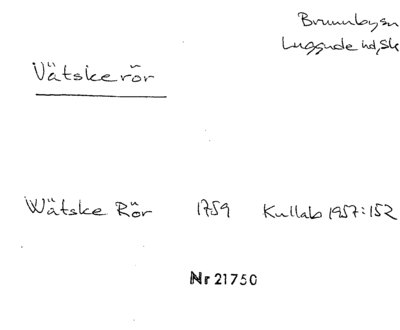 Brunnby sn
Luggude hd, Sk
Vätskerör
Wätske Rör 1759 Kullab 1957:152
Nr 21750